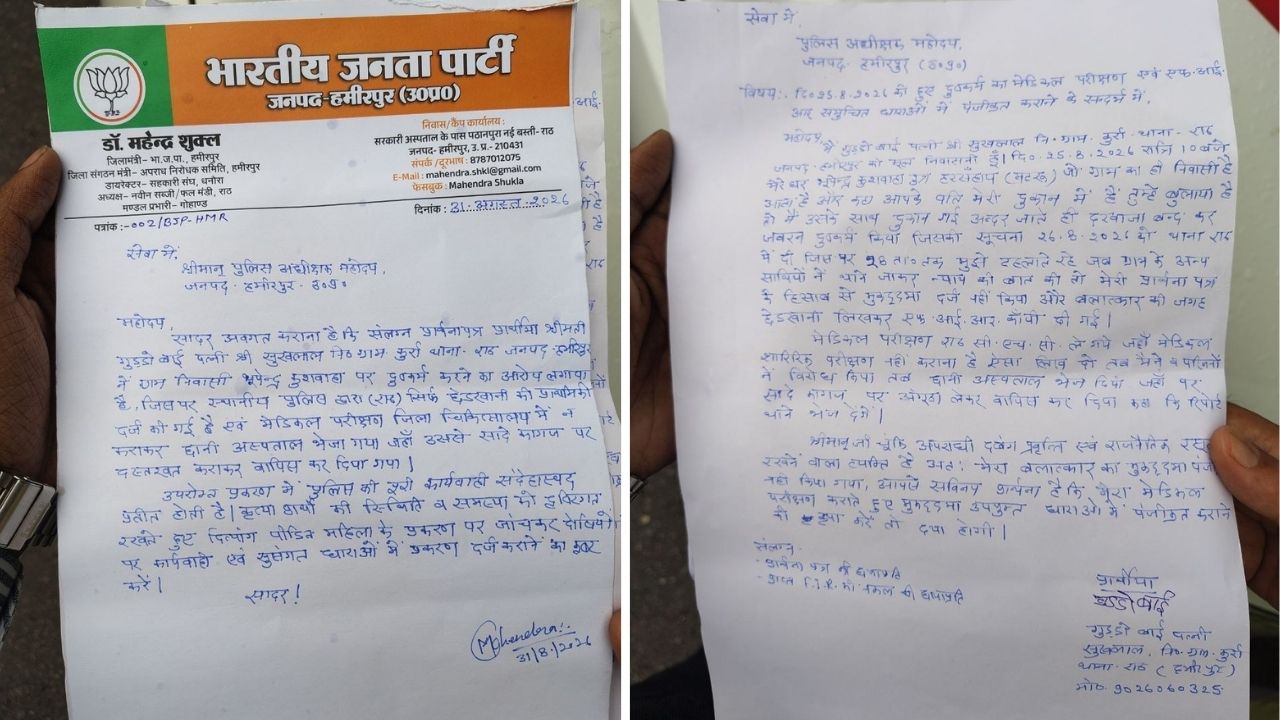 भारतीय जनता पार्टी
जनपद-हमीरपुर (उ0प्र0)
डॉ. महेन्द्र शुक्ल
जिलामंत्री- भा.ज.पा., हमीरपुर
जिला संगठन मंत्री- अपराध निरोधक समिति, हमीरपुर
डायरेक्टर- सहकारी संघ, धनौरा
अध्यक्ष- नवीन सब्जी/फल मंडी, राठ
मण्डल प्रभारी- गोहाण्ड
निवास/कैंप कार्यालय :
सरकारी अस्पताल के पास पठानपुरा नई बस्ती- राठ
जनपद- हमीरपुर, उ. प्र.- 210431
संपर्क /दूरभाष : 8787012075
E-Mail : mahendra.shkl@gmail.com
फेसबुक : Mahendra Shukla
पत्रांक :-002/BJP-HMR
दिनांक : 31-अगस्त-2026
सेवा में,
श्रीमान् पुलिस अधीक्षक महोदय,
जनपद- हमीरपुर- उ०प्र०
महोदय,
सादर अवगत कराना है कि संलग्न प्रार्थनापत्र प्रार्थीया श्रीमती
गुड्डी बाई पत्नी श्री सुखलाल नि० ग्राम कुर्रा थाना- राठ जनपद हमीरपुर
ने ग्राम निवासी भूपेन्द्र कुशवाहा पर दुष्कर्म करने का आरोप लगाया
है, जिस पर स्थानीय पुलिस द्वारा (राठ) सिर्फ छेड़खानी की प्राथमिकी
दर्ज की गई है एवं मेडिकल परीक्षण जिला चिकित्सालय में न
कराकर छानी अस्पताल भेजा गया जहाँ उससे सादे कागज पर
दस्तखत कराकर वापिस कर दिया गया।
उपरोक्त प्रकरण में पुलिस की पूरी कार्यवाही संदेहास्पद
प्रतीत होती है। कृपया प्रार्थी की स्थिति व समस्या को दृष्टिगत
रखते हुए दिव्यांग पीड़ित महिला के प्रकरण पर जांचकर दोषियों
पर कार्यवाही एवं सुसंगत धाराओं में प्रकरण दर्ज कराने का
करें।
सादर!
Mahendra
31/8/2026
सेवा में,
पुलिस अधीक्षक महोदय,
जनपद- हमीरपुर (उ०प्र०)
विषय:- दि० 25.8.2026 को हुए दुष्कर्म का मेडिकल परीक्षण एवं एफ.आई.
आर समुचित धाराओं में पंजीकृत कराने के सन्दर्भ में,
महोदय,
मैं गुड्डी बाई पत्नी श्री सुखलाल नि. ग्राम. कुर्रा- थाना- राठ
जनपद- हमीरपुर की मूल निवासिनी हूँ। दि०. 25.8.2026 रात्रि 10 बजे
मेरे घर भूपेन्द्र कुशवाहा पुत्र जो ग्राम का ही निवासी है
आता है और कहा आपके पति मेरी दुकान में है तुम्हें बुलाया है
तो मैं उसके साथ दुकान गई अन्दर जाते ही दरवाजा बन्द कर
जबरन दुष्कर्म किया जिसकी सूचना 26.8.2026 को थाना राठ
में दी जिस पर ता० तक मुझे टहलाते रहे जब ग्राम के अन्य
साथियों ने थाने जाकर न्याय की बात की तो मेरी प्रार्थना पत्र
के हिसाब से मुकद्दमा दर्ज नहीं किया और बलात्कार की जगह
छेड़खानी लिखकर एफ.आई.आर. कॉपी दी गई।
मेडिकल परीक्षण राठ सी. एच. सी. ले गये जहाँ मेडिकल
शारीरिक परीक्षण नहीं कराना है ऐसा लिख दो तब मैंने व परिजनों
ने विरोध किया तब छानी अस्पताल भेज दिया जहाँ पर
सादे कागज पर अंगूठा लेकर वापिस कर दिया कहा कि रिपोर्ट
थाने भेज देंगे।
श्रीमान् जी चूंकि अपराधी दबंग प्रवृत्ति एवं राजनैतिक
रखने वाला व्यक्ति है अत: मेरा बलात्कार का मुकद्दमा
नहीं किया गया, आपसे सविनय प्रार्थना है कि मेरा मेडिकल
परीक्षण कराते हुए मुकद्दमा उपयुक्त धाराओं में पंजीकृत कराने
की कृपा करें तो दया होगी।
संलग्न-
- प्रार्थना पत्र की छायाप्रति
- प्राप्त F.I.R. की नकल की छायाप्रति
प्रार्थीया
गुड्डी बाई पत्नी
सुखलाल, नि० ग्राम- कुर्रा
थाना- राठ (हमीरपुर)
मो०- 9026060325